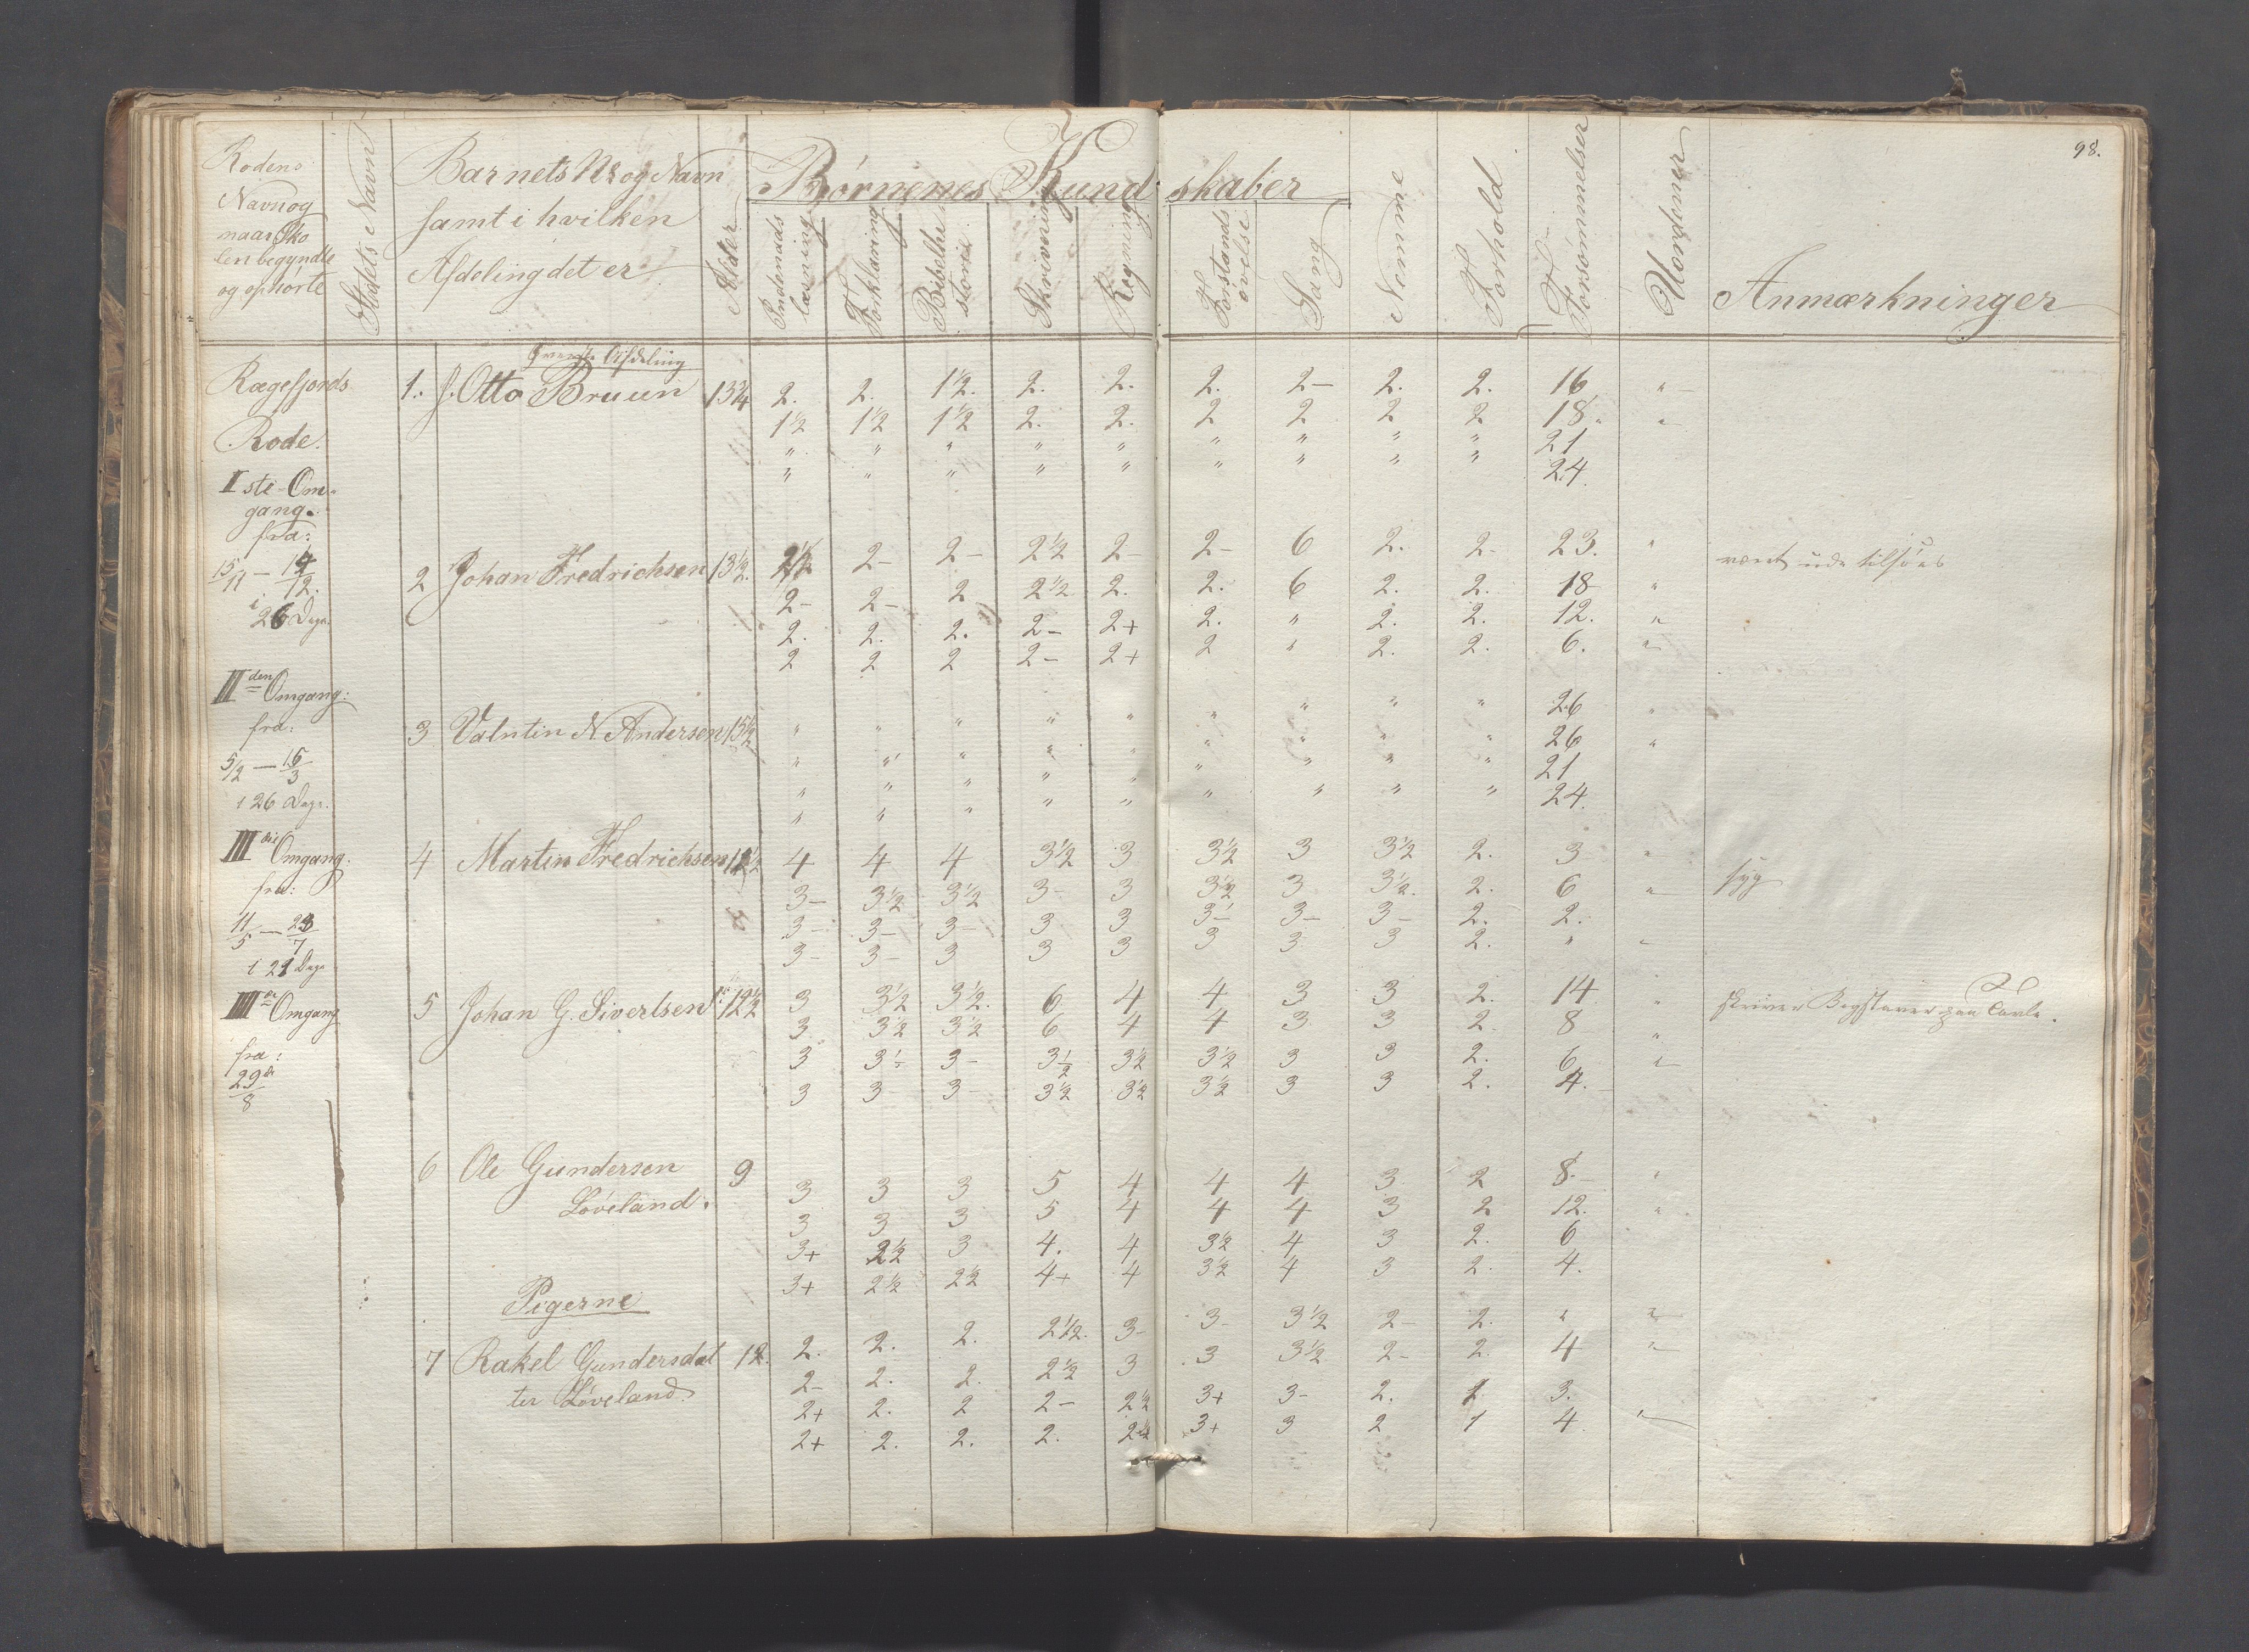 98.
Rodens Navn og naar Skolen begyndte og ophørte
Stdets Navn
Barnets Nr og Navn samt i hvilken Afdeling det er
Alder
Børnenes Kundskaber
Indenads læsning
Forklaring
Bibelhistorie
Skrivning
Regning
Forstands øvelse
Sang
Nemme
Forhold
Forsømmelser
Uordener
Anmærkninger
Øverste Afdeling
Rægefjords
Rode.
I ste Omgang.
fra:
15/11 — 14/12.
i 26 Dage.
II den Omgang:
fra:
5/2 — 16/3
i 26 Dage.
III die Omgang.
fra:
11/5 — 23/7
i 21 Dage
IIII de Omgang
fra:
29/8
1. J. Otto Bruun 13¾ 2. 2. 1½. 2. 2. 2. 2– 2. 2. 16 "
1½ 1½ 1½ 2. 2. 2 2 2 2 18. "
" " " " " " " " " 21
" " " " " " " " " 24.
2 Johan Fredrichsen 13½. 2½ 2– 2– 2½ 2– 2– 6 2. 2. 23. " været ude tilsøes
2– 2– 2 2½ 2. 2. 6 2. 2. 18 "
2. 2. 2. 2– 2+ 2. " 2. 2. 12. "
2 2 2 2– 2+ 2 " 2. 2. 6. "
3 Valntin N Andersen 15½ " " " " " " " " " 26 "
" " " " " " " " " 26 "
" " " " " " " " " 21
" " " " " " " " " 24.
4 Martin Fredrichsen 12½ 4 4 4 3½ 3 3½ 3 3½ 2. 3 "
3– 3½ 3½ 3– 3 3½ 3 3½. 2. 6 " syg
3– 3– 3– 3 3 3– 3– 3– 2. 2.
3– 3– 3 3 3 3 3 3 2. " "
5 Johan G. Sivertsen 12½ 3 3½ 3½. 6 4 4 3 3 2. 14 " skriver Bogstaver paa Tavle.
3 3½ 3½ 6 4 4 3 3 2. 8 "
3 3½ 3– 3½ 3½ 3½ 3 3 2. 6 "
3 3 3– 3½ 3½ 3½ 3 3 2. 4.
6 Ole Gundersen 9 3 3 3 5 4 4 4 3 2 8. "
Løveland. 3 3 3 5 4 4 4 3 2 12. "
3+ 2½ 3 4. 4 3½ 4 3 2. 6
3+ 2½ 2½ 4+ 4 3½ 4 3 2. 4.
Pigerne
7 Rakel Gundersdat 12. 2. 2. 2. 2½. 3– 3– 3½ 2– 2. " "
ter Løveland. 2– 2. 2. 2½ 3 3 3½ 2– 2. 4 "
2+ 2. 2 2– 2½ 3+ 3– 2. 1 3.
2+ 2. 2. 2. 2½ 3+ 3 2 1 4 "